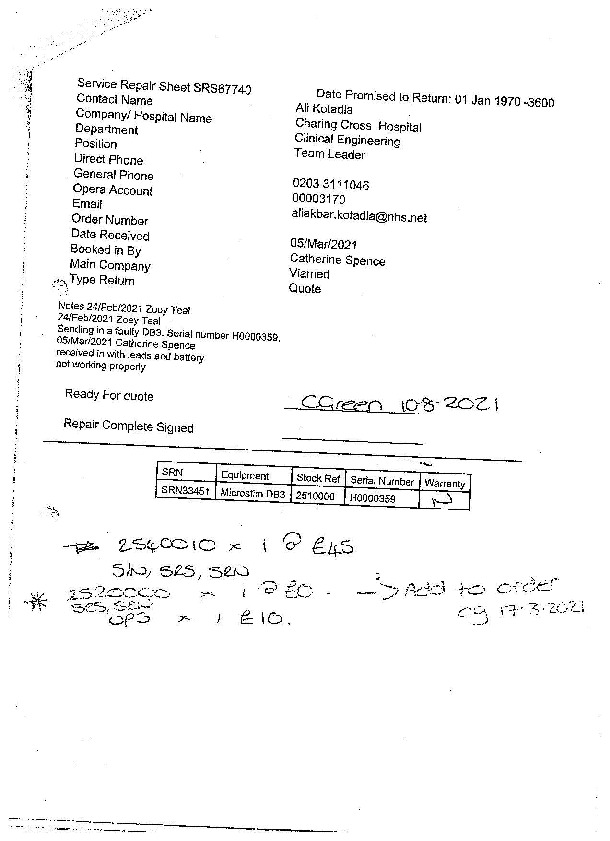 Service Repair Sheet SRS67740 Date Promised to Return: 01 Jan 1970 -3600
Contact Name Ali Kotadia
Company/ Hospital Name Charing Cross Hospital
Department Clinical Engineering
Position Team Leader
Direct Phone
General Phone 0203 3111046
Opera Account 00003170
Email aliakbar.kotadia@nhs.net
Order Number
Date Received 05/Mar/2021
Booked in By Catherine Spence
Main Company Viamed
Type Return Quote
Notes 24/Feb/2021 Zoey Teal
24/Feb/2021 Zoey Teal
Sending in a faulty DB3. Serial number H0000359.
05/Mar/2021 Catherine Spence
received in with leads and battery
not working properly
Ready For quote CGreen 10-8-2021
Repair Complete Signed
SRN Equipment Stock Ref Serial Number Warranty
SRN33451 Microstim DB3 2510000 H0000359 N
2540010 x 1 @ £45
S/N, SRS, SRN
* 2520000 x 1 @ £0. -> Add to order
SRS, SRN cg 17-3-2021
UPS x 1 £10.